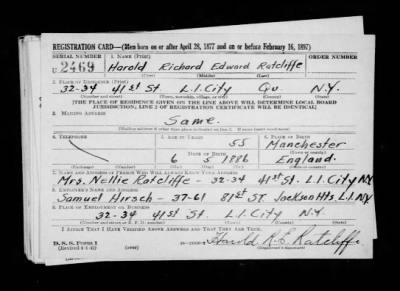 REGISTRATION CARD—(Men born on or after April 28, 1877 and on or before February 16, 1897)
SERIAL NUMBER 1. NAME (Print) ORDER NUMBER
U 2469 Harold Richard Edward Ratcliffe
(First) (Middle) (Last)
2. PLACE OF RESIDENCE (Print)
32-34 41st St. L.I. City Qu. N.Y.
(Number and street) (Town, township, village, or city) (County) (State)
[THE PLACE OF RESIDENCE GIVEN ON THE LINE ABOVE WILL DETERMINE LOCAL BOARD
JURISDICTION; LINE 2 OF REGISTRATION CERTIFICATE WILL BE IDENTICAL]
3. MAILING ADDRESS
Same.
4. TELEPHONE 5. AGE IN YEARS 6. PLACE OF BIRTH
55 Manchester
DATE OF BIRTH
6 5 1886 England.
(Exchange) (Number) (Mo.) (Day) (Yr.) (State or country)
7. NAME AND ADDRESS OF PERSON WHO WILL ALWAYS KNOW YOUR ADDRESS
Mrs. Nellie Ratcliffe - 32-34 41st St. L.I. City N.Y.
8. EMPLOYER'S NAME AND ADDRESS
Samuel Hirsch - 37-61 81st St. Jackson Hts. L.I. N.Y.
9. PLACE OF EMPLOYMENT OR BUSINESS
32-34 41st St. L.I. City N.Y.
(Number and street or R. F. D. number) (Town) (County) (State)
I AFFIRM THAT I HAVE VERIFIED ABOVE ANSWERS AND THAT THEY ARE TRUE.
D. S. S. Form 1
(Revised 4-1-42) (over) Harold R.E. Ratcliffe
(Registrant's signature)